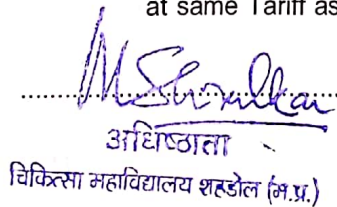 at same Tariff as
अधिष्ठाता
चिकित्सा महाविद्यालय शहडोल (म.प्र.)